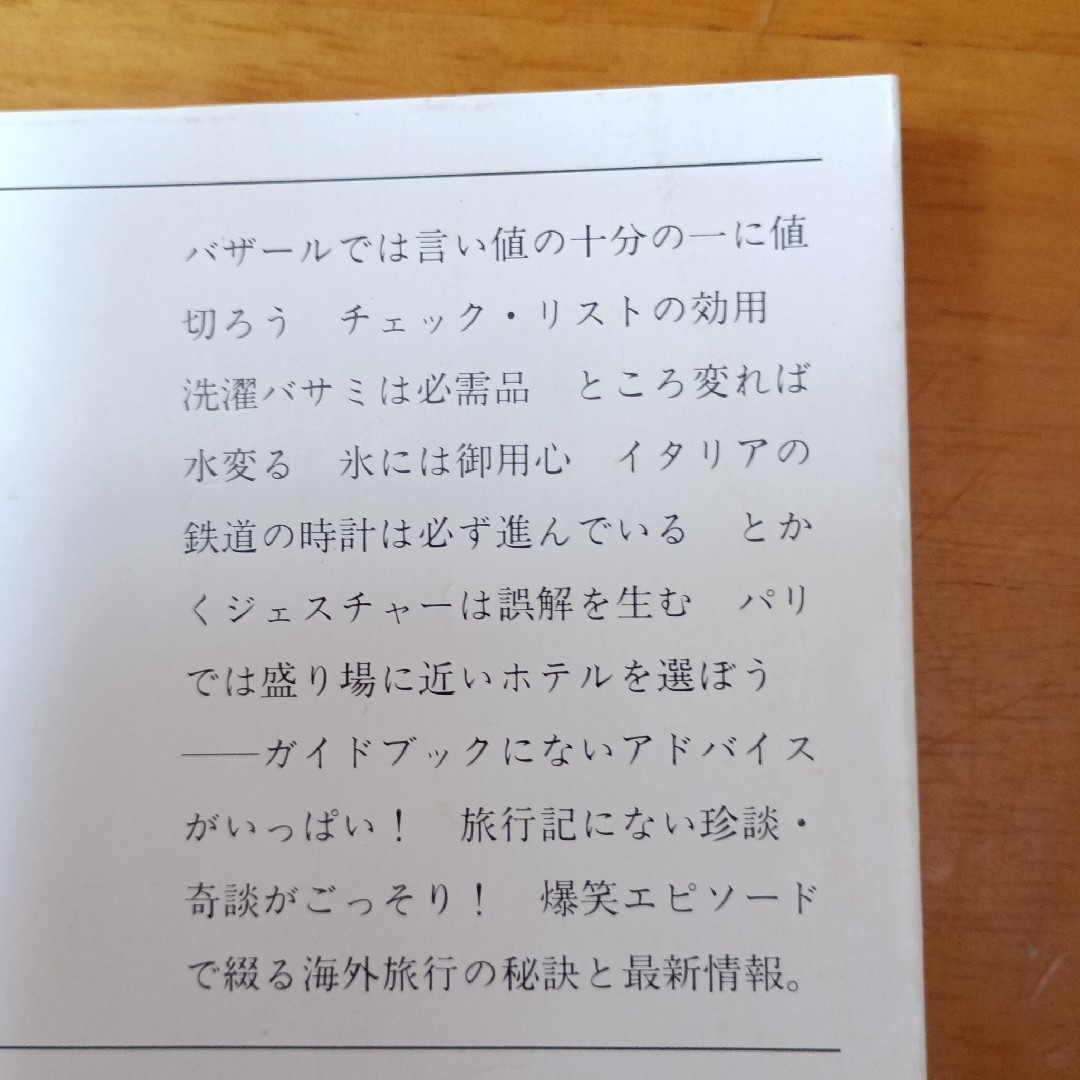 バザールでは言い値の十分の一に値
切ろう　チェック・リストの効用
洗濯バサミは必需品　ところ変れば
水変る　氷には御用心　イタリアの
鉄道の時計は必ず進んでいる　とか
くジェスチャーは誤解を生む　パリ
では盛り場に近いホテルを選ぼう
――ガイドブックにないアドバイス
がいっぱい！　旅行記にない珍談・
奇談がごっそり！　爆笑エピソード
で綴る海外旅行の秘訣と最新情報。